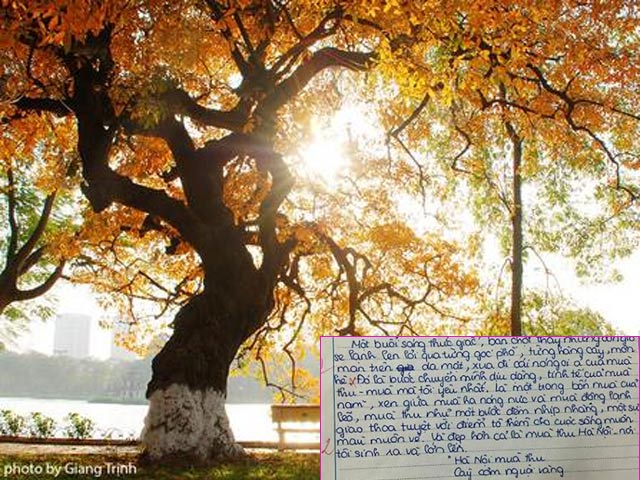 photo by Giang Trịnh
Một buổi sáng thức giấc, bạn chợt thấy những
se lạnh len lỏi qua từng góc phố, từng hàng cây, mơn
man trên da mát, xua đi cái nóng oi ả của mùa
hè. Đó là bước chuyển mình dịu dàng, tinh tế của mùa
thu - mùa mà tôi yêu nhất. Là một trong bốn mùa của
năm, xen giữa mùa hạ nóng nực và mùa đông lạnh
lẽo, mùa thu như một bước đệm nhịp nhàng, một sự
giao thoa tuyệt vời điểm tô thêm cho cuộc sống muôn
màu muôn vẻ. Và đẹp hơn cả là mùa thu Hà Nội - nơi
tôi sinh ra và lớn lên.
"Hà Nội mùa thu
Cây cơm nguội vàng
photo by Giang Trinh